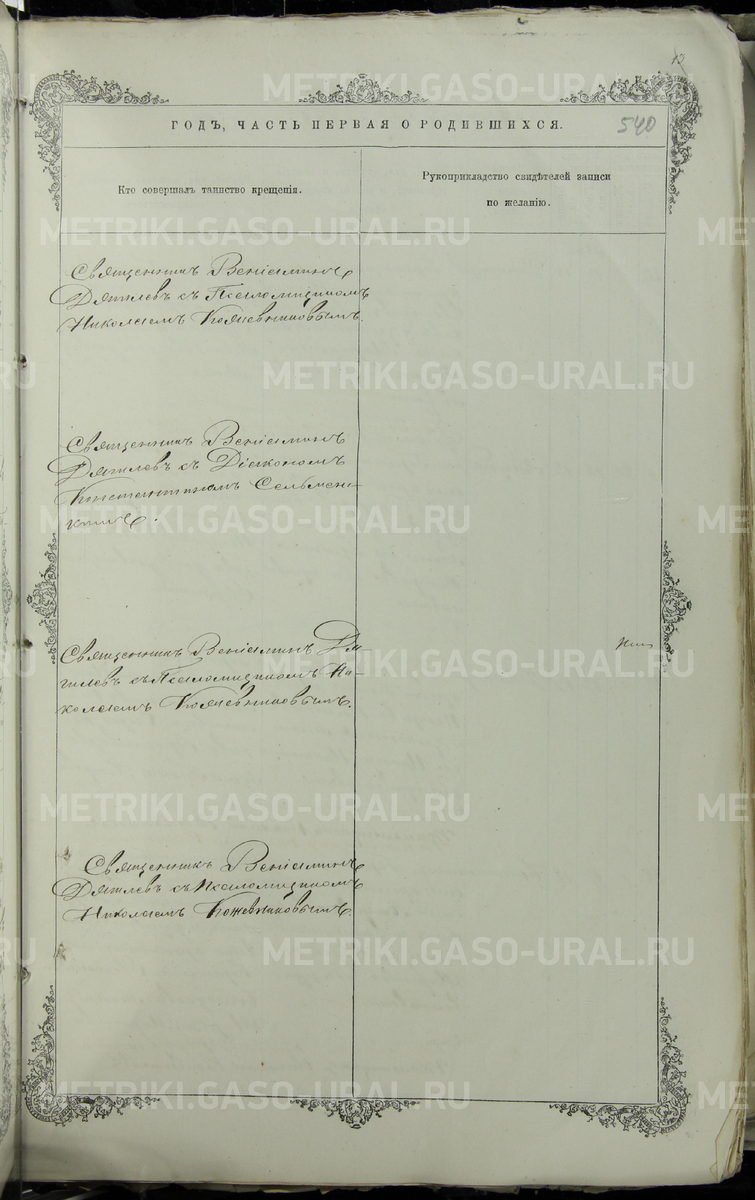 13
ГОДЪ, ЧАСТЬ ПЕРВАЯ О РОДИВШИХСЯ.
540
Кто совершалъ таинство крещенія.
Рукоприкладство свидѣтелей записи
по желанію.
Священникъ Веніаминъ
Дягилевъ съ Псаломщикомъ
Николаемъ Кожевниковымъ.
Священникъ Веніаминъ
Дягилевъ съ Діакономъ
Константиномъ Сельмен-
Священникъ Веніаминъ Дя-
гилевъ съ Псаломщикомъ Ни-
колаемъ Кожевниковымъ.
Священникъ Веніаминъ
Дягилевъ съ Псаломщикомъ
Николаемъ Кожевниковымъ.
METRIKI.GASO-URAL.RU